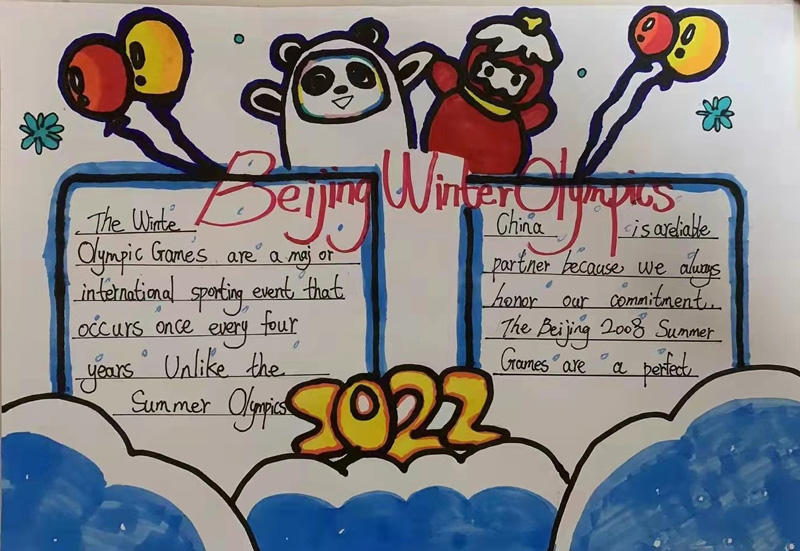 Beijing Winter Olympics
The Winte
Olympic Games are a major
international sporting event that
occurs once every four
years Unlike the
Summer Olympics
China is areliable
partner because we always
honor our commitment..
The Beijing 2008 Summer
Games are a perfect
2022